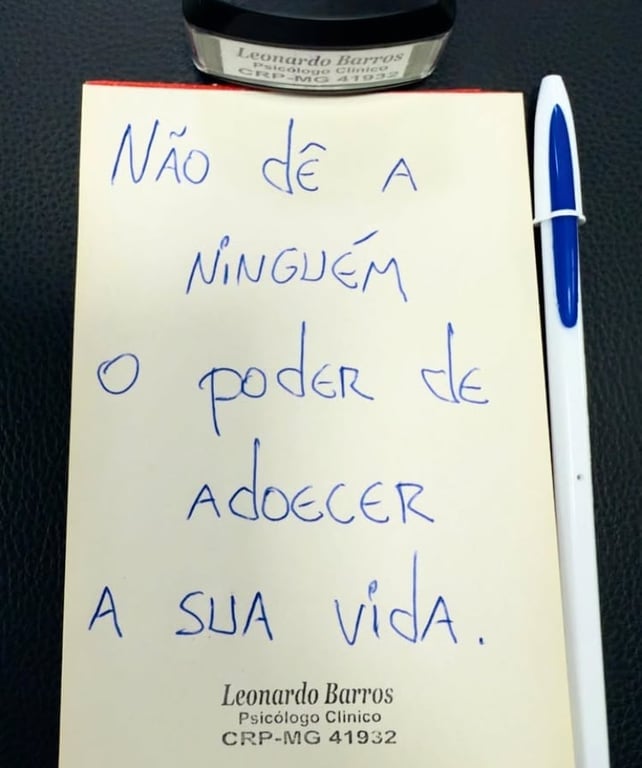 Leonardo Barros
Psicólogo Clínico
CRP-MG 41932
NÃO dê A
NINGUÉM
O PODER DE
ADOECER
A SUA VIDA.
Leonardo Barros
Psicólogo Clinico
CRP-MG 41932